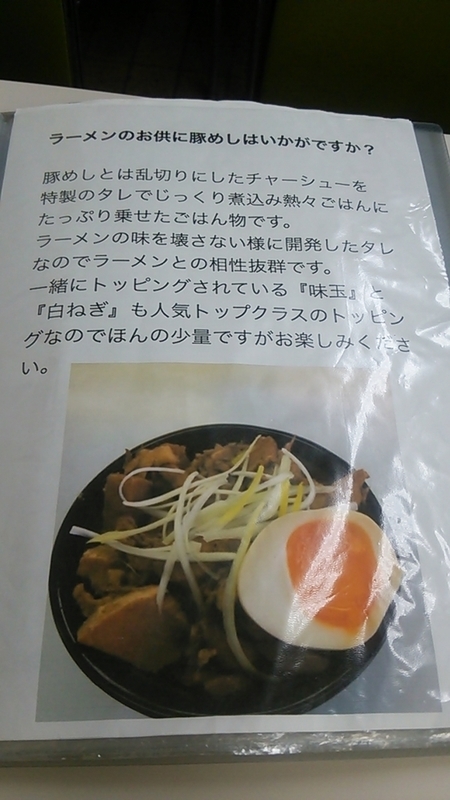 ラーメンのお供に豚めしはいかがですか？
豚めしとは乱切りにしたチャーシューを
特製のタレでじっくり煮込み熱々ごはんに
たっぷり乗せたごはん物です。
ラーメンの味を壊さない様に開発したタレ
なのでラーメンとの相性抜群です。
一緒にトッピングされている『味玉』と
『白ねぎ』も人気トップクラスのトッピン
グなのでほんの少量ですがお楽しみくださ
い。